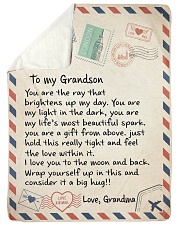 To my Grandson
You are the ray that
brightens up my day. You are
my light in the dark, you are
my life's most beautiful spark.
you are a gift from above. just
hold this really tight and feel
the love within it.
I love you to the moon and back.
Wrap yourself up in this and
consider it a big hug!!
Love, Grandma